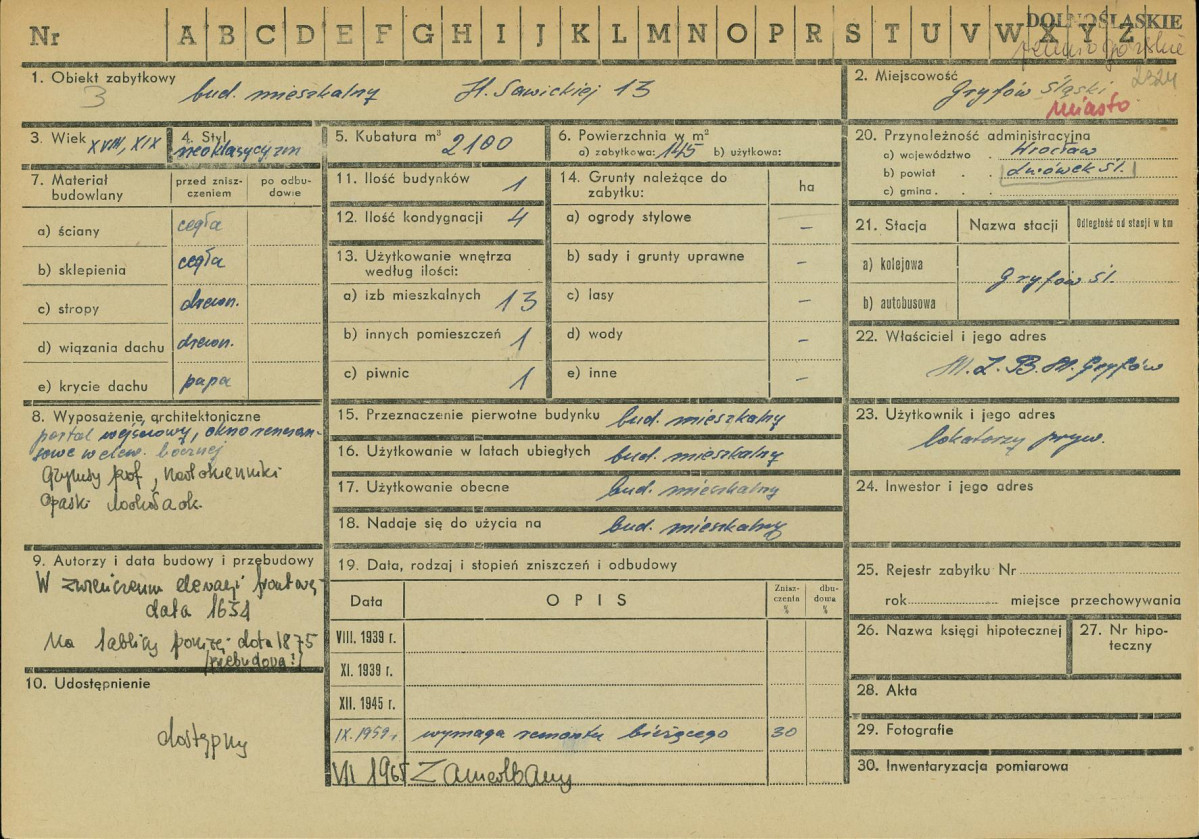 DOLNOŚLĄSKIE
Nr A B C D E F G H I J K L M N O P R S T U V W X Y Z
2924
1. Obiekt zabytkowy
3
bud. mieszkalny H. Sawickiej 13
2. Miejscowość
Gryfów Śląski
miasto
3. Wiek XVIII, XIX
4. Styl neoklasycyzm
5. Kubatura m³ 2100
6. Powierzchnia w m²
a) zabytkowa: 145 b) użytkowa:
20. Przynależność administracyjna
a) województwo Wrocław
b) powiat Lwówek Śl.
c) gmina
7. Materiał budowlany
przed zniszczeniem
po odbudowie
a) ściany cegła
b) sklepienia cegła
c) stropy drewn.
d) wiązania dachu drewn.
e) krycie dachu papa
11. Ilość budynków 1
12. Ilość kondygnacji 4
13. Użytkowanie wnętrza
według ilości:
a) izb mieszkalnych 13
b) innych pomieszczeń 1
c) piwnic 1
14. Grunty należące do
zabytku:
ha
a) ogrody stylowe –
b) sady i grunty uprawne –
c) lasy –
d) wody –
e) inne –
21. Stacja Nazwa stacji Odległość od stacji w km
a) kolejowa
Gryfów Śl.
b) autobusowa
22. Właściciel i jego adres
M. Z. B. M. Gryfów
8. Wyposażenie architektoniczne
portal wejściowy, okno renesan-
sowe w elew. bocznej
Gzymsy prof, nadokienniki
opaski dookoła ok.
15. Przeznaczenie pierwotne budynku bud. mieszkalny
16. Użytkowanie w latach ubiegłych bud. mieszkalny
17. Użytkowanie obecne bud. mieszkalny
18. Nadaje się do użycia na bud. mieszkalny
23. Użytkownik i jego adres
lokatorzy pryw.
24. Inwestor i jego adres
9. Autorzy i data budowy i przebudowy
W zwieńczeniu elewacji frontowej
data 1654
Na tablicy poniżej data 1875
/przebudowa!/
10. Udostępnienie
dostępny
19. Data, rodzaj i stopień zniszczeń i odbudowy
Data OPIS Zniszczenia % dbudowa %
VIII. 1939 r.
XI. 1939 r.
XII. 1945 r.
IX. 1959 r. wymaga remontu bieżącego 30
VII 1965
25. Rejestr zabytku Nr
rok miejsce przechowywania
26. Nazwa księgi hipotecznej
27. Nr hipoteczny
28. Akta
29. Fotografie
30. Inwentaryzacja pomiarowa